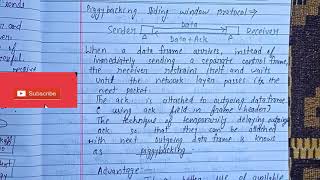 Piggybacking Sliding window protocol →
Data
Sender Receiver
Data + Ack
When a data frame arrives, instead of
immediately sending a separate control frame,
the receiver restraints itself and waits
Until the network layer passes its the
next packet
The ack. is attached to outgoing data frame
using ack field in frame header
The technique of temporarily delaying outgoing
ack so that they can be added
with next outgoing data frame is known
as piggybacking
Advantage:-
better use of available
Subscribe